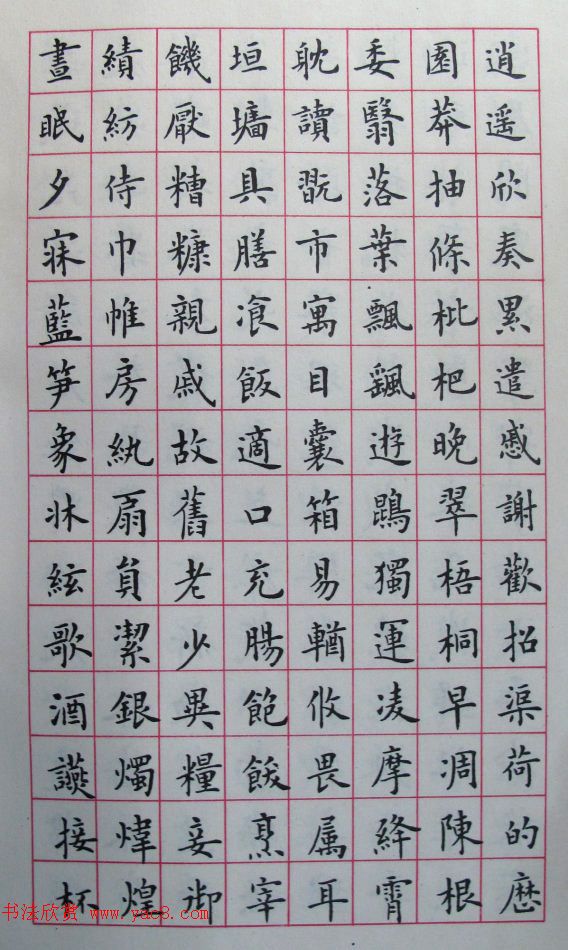 逍遥欣奏累遣慼謝歡招渠荷的歷
園莽抽條枇杷晚翠梧桐早凋陳根
委翳落葉飄飖遊鵾獨運凌摩絳霄
耽讀翫市寓目囊箱易輶攸畏属耳
垣墻具膳飡飯適口充腸飽飫烹宰
饑厭糟糠親戚故舊老少異糧妾御
績紡侍巾帷房紈扇員潔銀燭煒煌
晝眠夕寐藍笋象牀絃歌酒讌接杯
书法欣赏 www.yac8.com